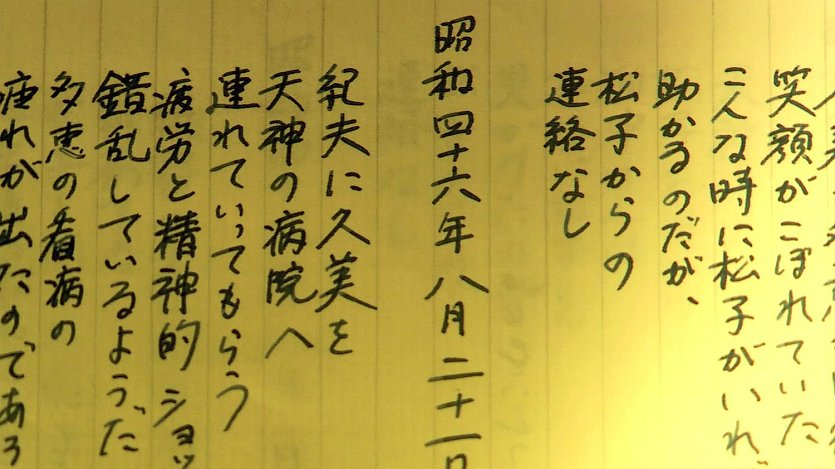 笑顔がこぼれていた
こんな時に松子がいれば
助かるのだが、
松子からの
連絡なし
昭和四十六年八月二十一日
紀夫に久美を
天神の病院へ
連れていってもらう
疲労と精神的ショッ
錯乱しているようだ
多恵の看病の
疲れが出たのであろ